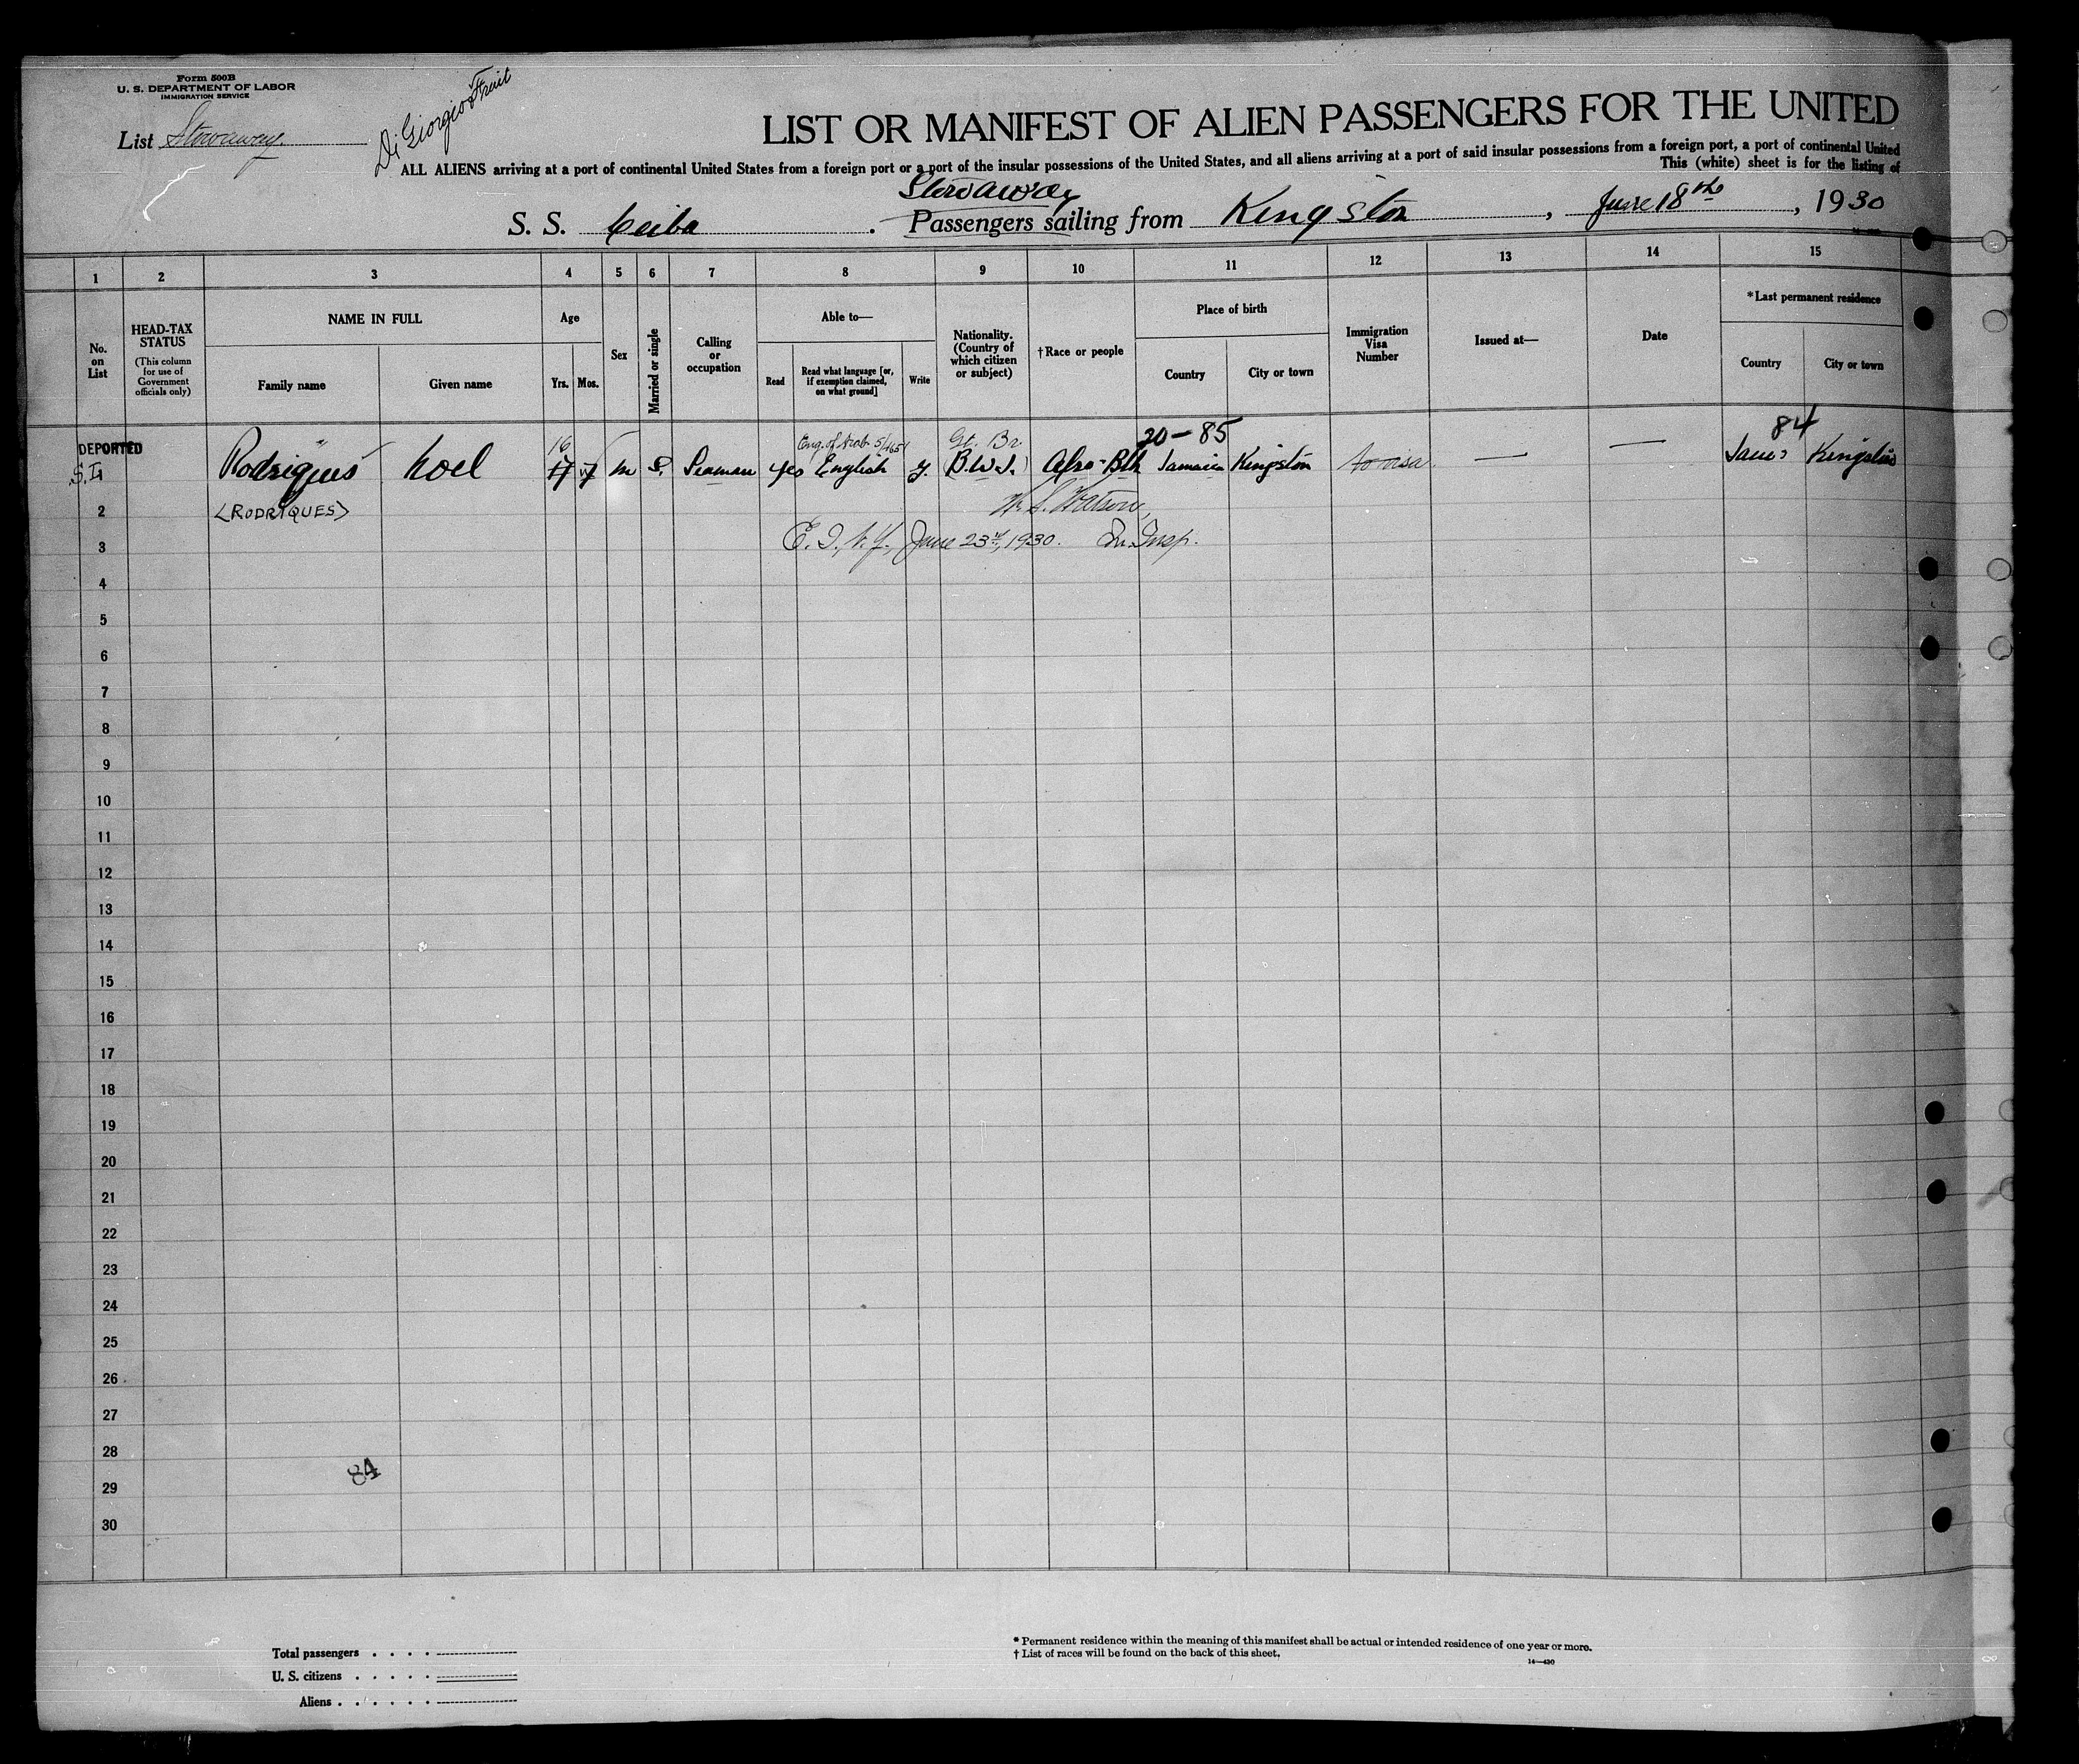 Form 500B
U. S. DEPARTMENT OF LABOR
IMMIGRATION SERVICE
List Stowaway.
Di Giorgio Fruit
LIST OR MANIFEST OF ALIEN PASSENGERS FOR THE UNITED
ALL ALIENS arriving at a port of continental United States from a foreign port or a port of the insular possessions of the United States, and all aliens arriving at a port of said insular possessions from a foreign port, a port of continental United
This (white) sheet is for the listing of
Stowaway
S. S. Ceiba . Passengers sailing from Kingston , June 18th , 1930
1 2 3 4 5 6 7 8 9 10 11 12 13 14 15
No. on List
HEAD-TAX STATUS
(This column for use of Government officials only)
NAME IN FULL
Family name
Given name
Age
Yrs.
Mos.
Sex
Married or single
Calling or occupation
Able to—
Read
Read what language [or, if exemption claimed, on what ground]
Write
Nationality. (Country of which citizen or subject)
†Race or people
Place of birth
Country
City or town
Immigration Visa Number
Issued at—
Date
*Last permanent residence
Country
City or town
DEPORTED
16 Gt. Br. 20-85 84
S.I. 1 Rodriques Noel m S. Seaman yes English y. (B.W.I.) Afro-Blk Jamaica Kingston no visa — — Kingston
2 <RODRIQUES> Watson,
3 E. I., N. Y., June 23rd, 1930. Im. Insp.
4
5
6
7
8
9
10
11
12
13
14
15
16
17
18
19
20
21
22
23
24
25
26
27
28
84
29
30
Total passengers
U. S. citizens
Aliens
* Permanent residence within the meaning of this manifest shall be actual or intended residence of one year or more.
† List of races will be found on the back of this sheet.
14—430